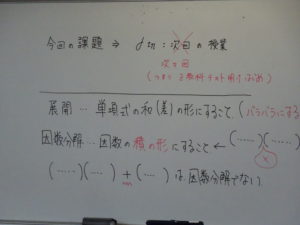 今回の課題 ⇒ 〆切:次回の授業
次々回
展開 … 単項式の和(差)の形にすること.(バラバラにする
因数分解 … 因数の積の形にすること ← (……)(……)
×
(……)(……)+(……)は因数分解でない